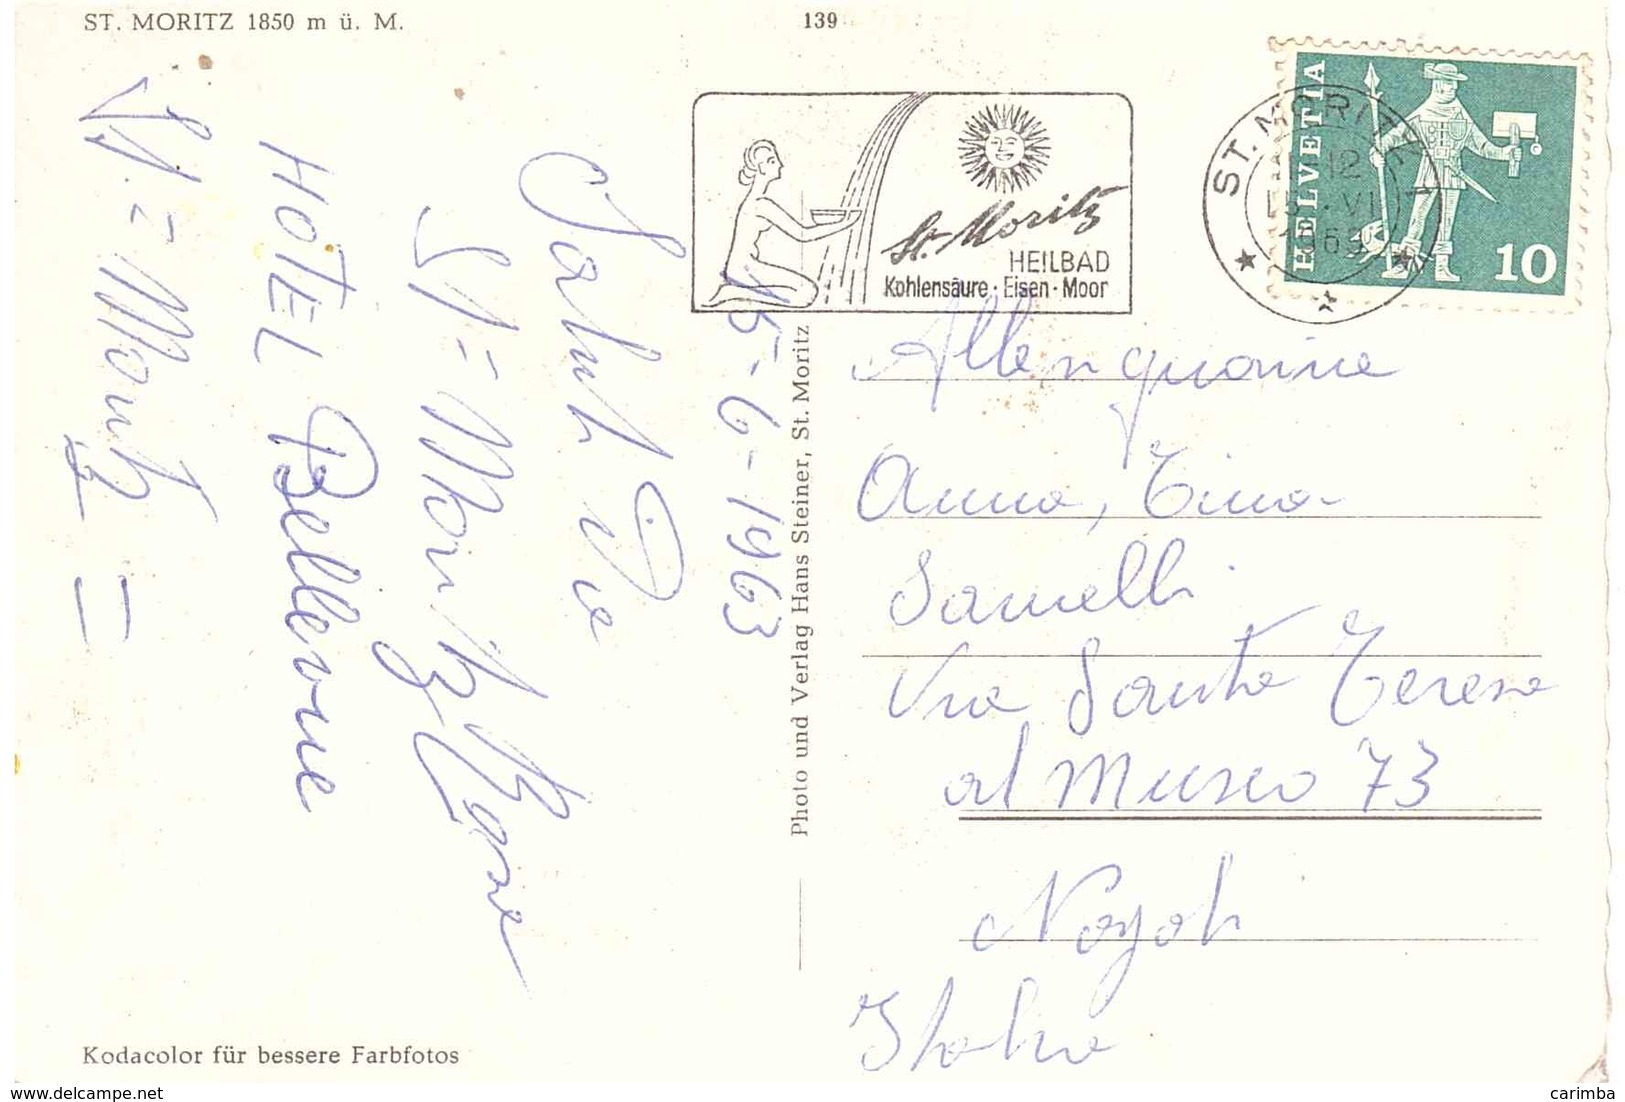 ST. MORITZ 1850 m ü. M.
139
St. Moritz
HEILBAD
Kohlensäure · Eisen · Moor
ST. MORITZ 1
12
VI
1963
HELVETIA
10
15-6-1963
Saluti Da
St = Moritz
HOTEL Bellevue
St = Moritz =
Photo und Verlag Hans Steiner, St. Moritz
Alle
Anna, Tina
Via Santa Teresa
al Museo 73
Napoli
Italia
Kodacolor für bessere Farbfotos
www.delcampe.net
carimba